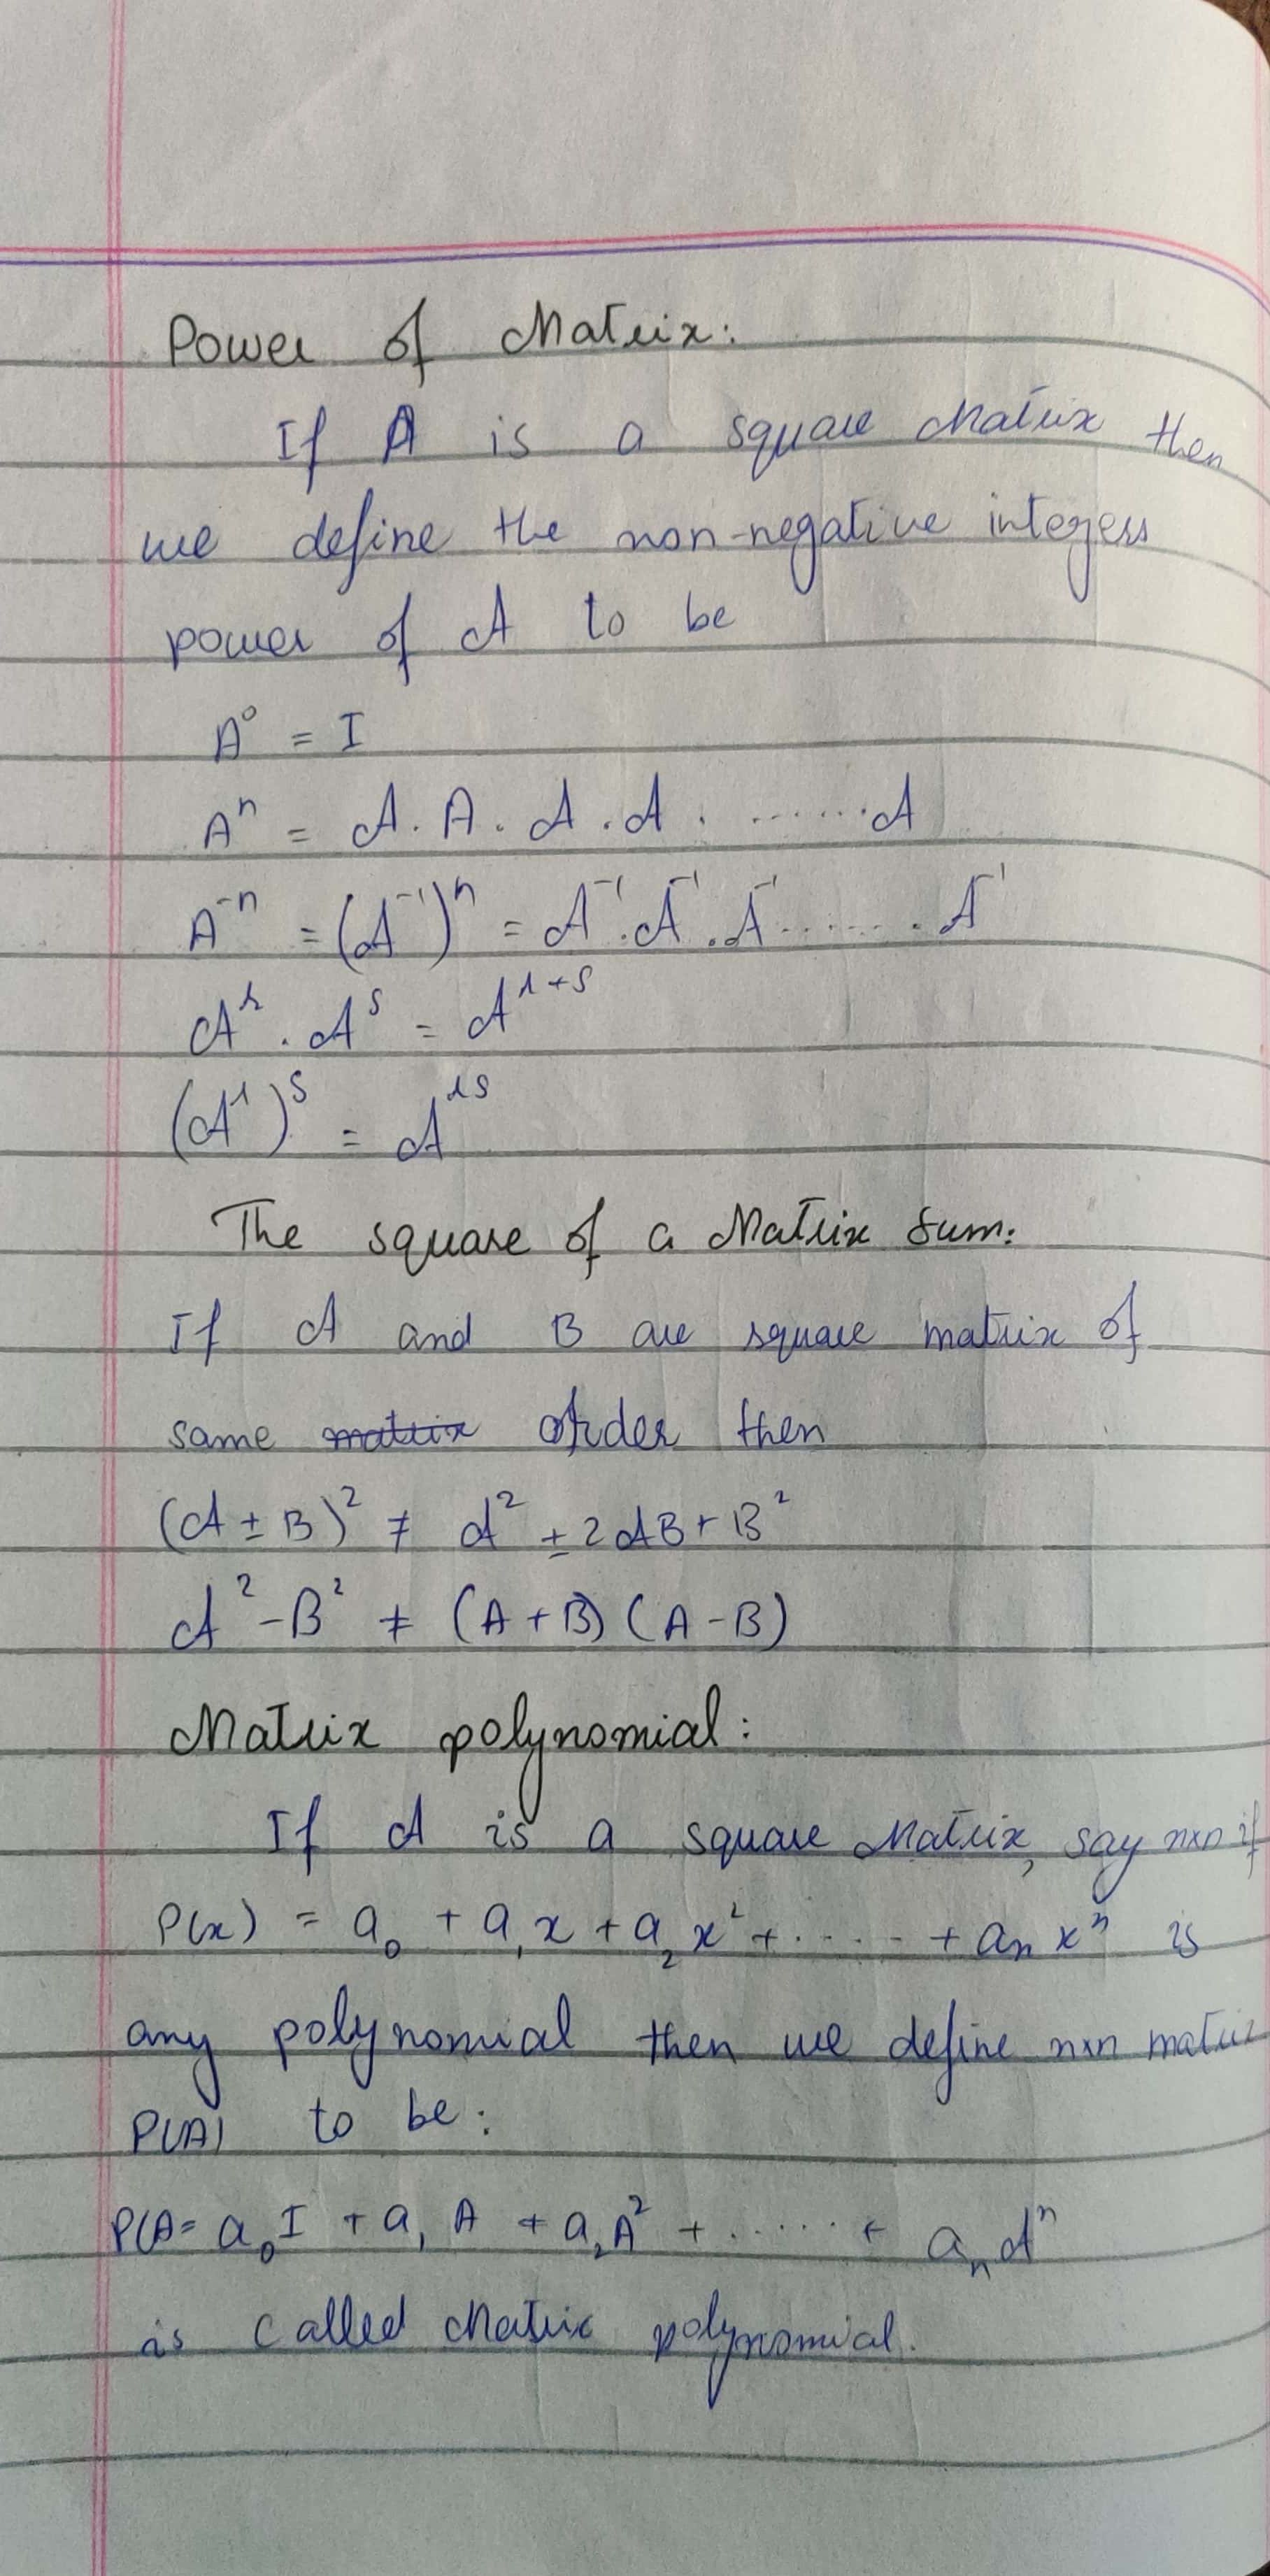 Power of Matrix:
If A is a square Matrix then
we define the non-negative integers
power of A to be
A⁰ = I
Aⁿ = A . A . A . A . ....... A
A⁻ⁿ = (A⁻¹)ⁿ = A⁻¹ . A⁻¹ . A⁻¹ ....... . A⁻¹
Aʳ . Aˢ = Aʳ⁺ˢ
(Aʳ)ˢ = Aʳˢ
The square of a Matrix Sum:
If A and B are square matrix of
same matrix order then
(A ± B)² ≠ A² ± 2AB + B²
A² - B² ≠ (A + B) (A - B)
Matrix polynomial:
If A is a square Matrix, say nxn if
P(x) = a₀ + a₁x + a₂x² + ..... + aₙxⁿ is
any polynomial then we define nxn matrix
P(A) to be:
P(A = a₀I + a₁A + a₂A² + ...... + aₙAⁿ
is called Matrix polynomial.